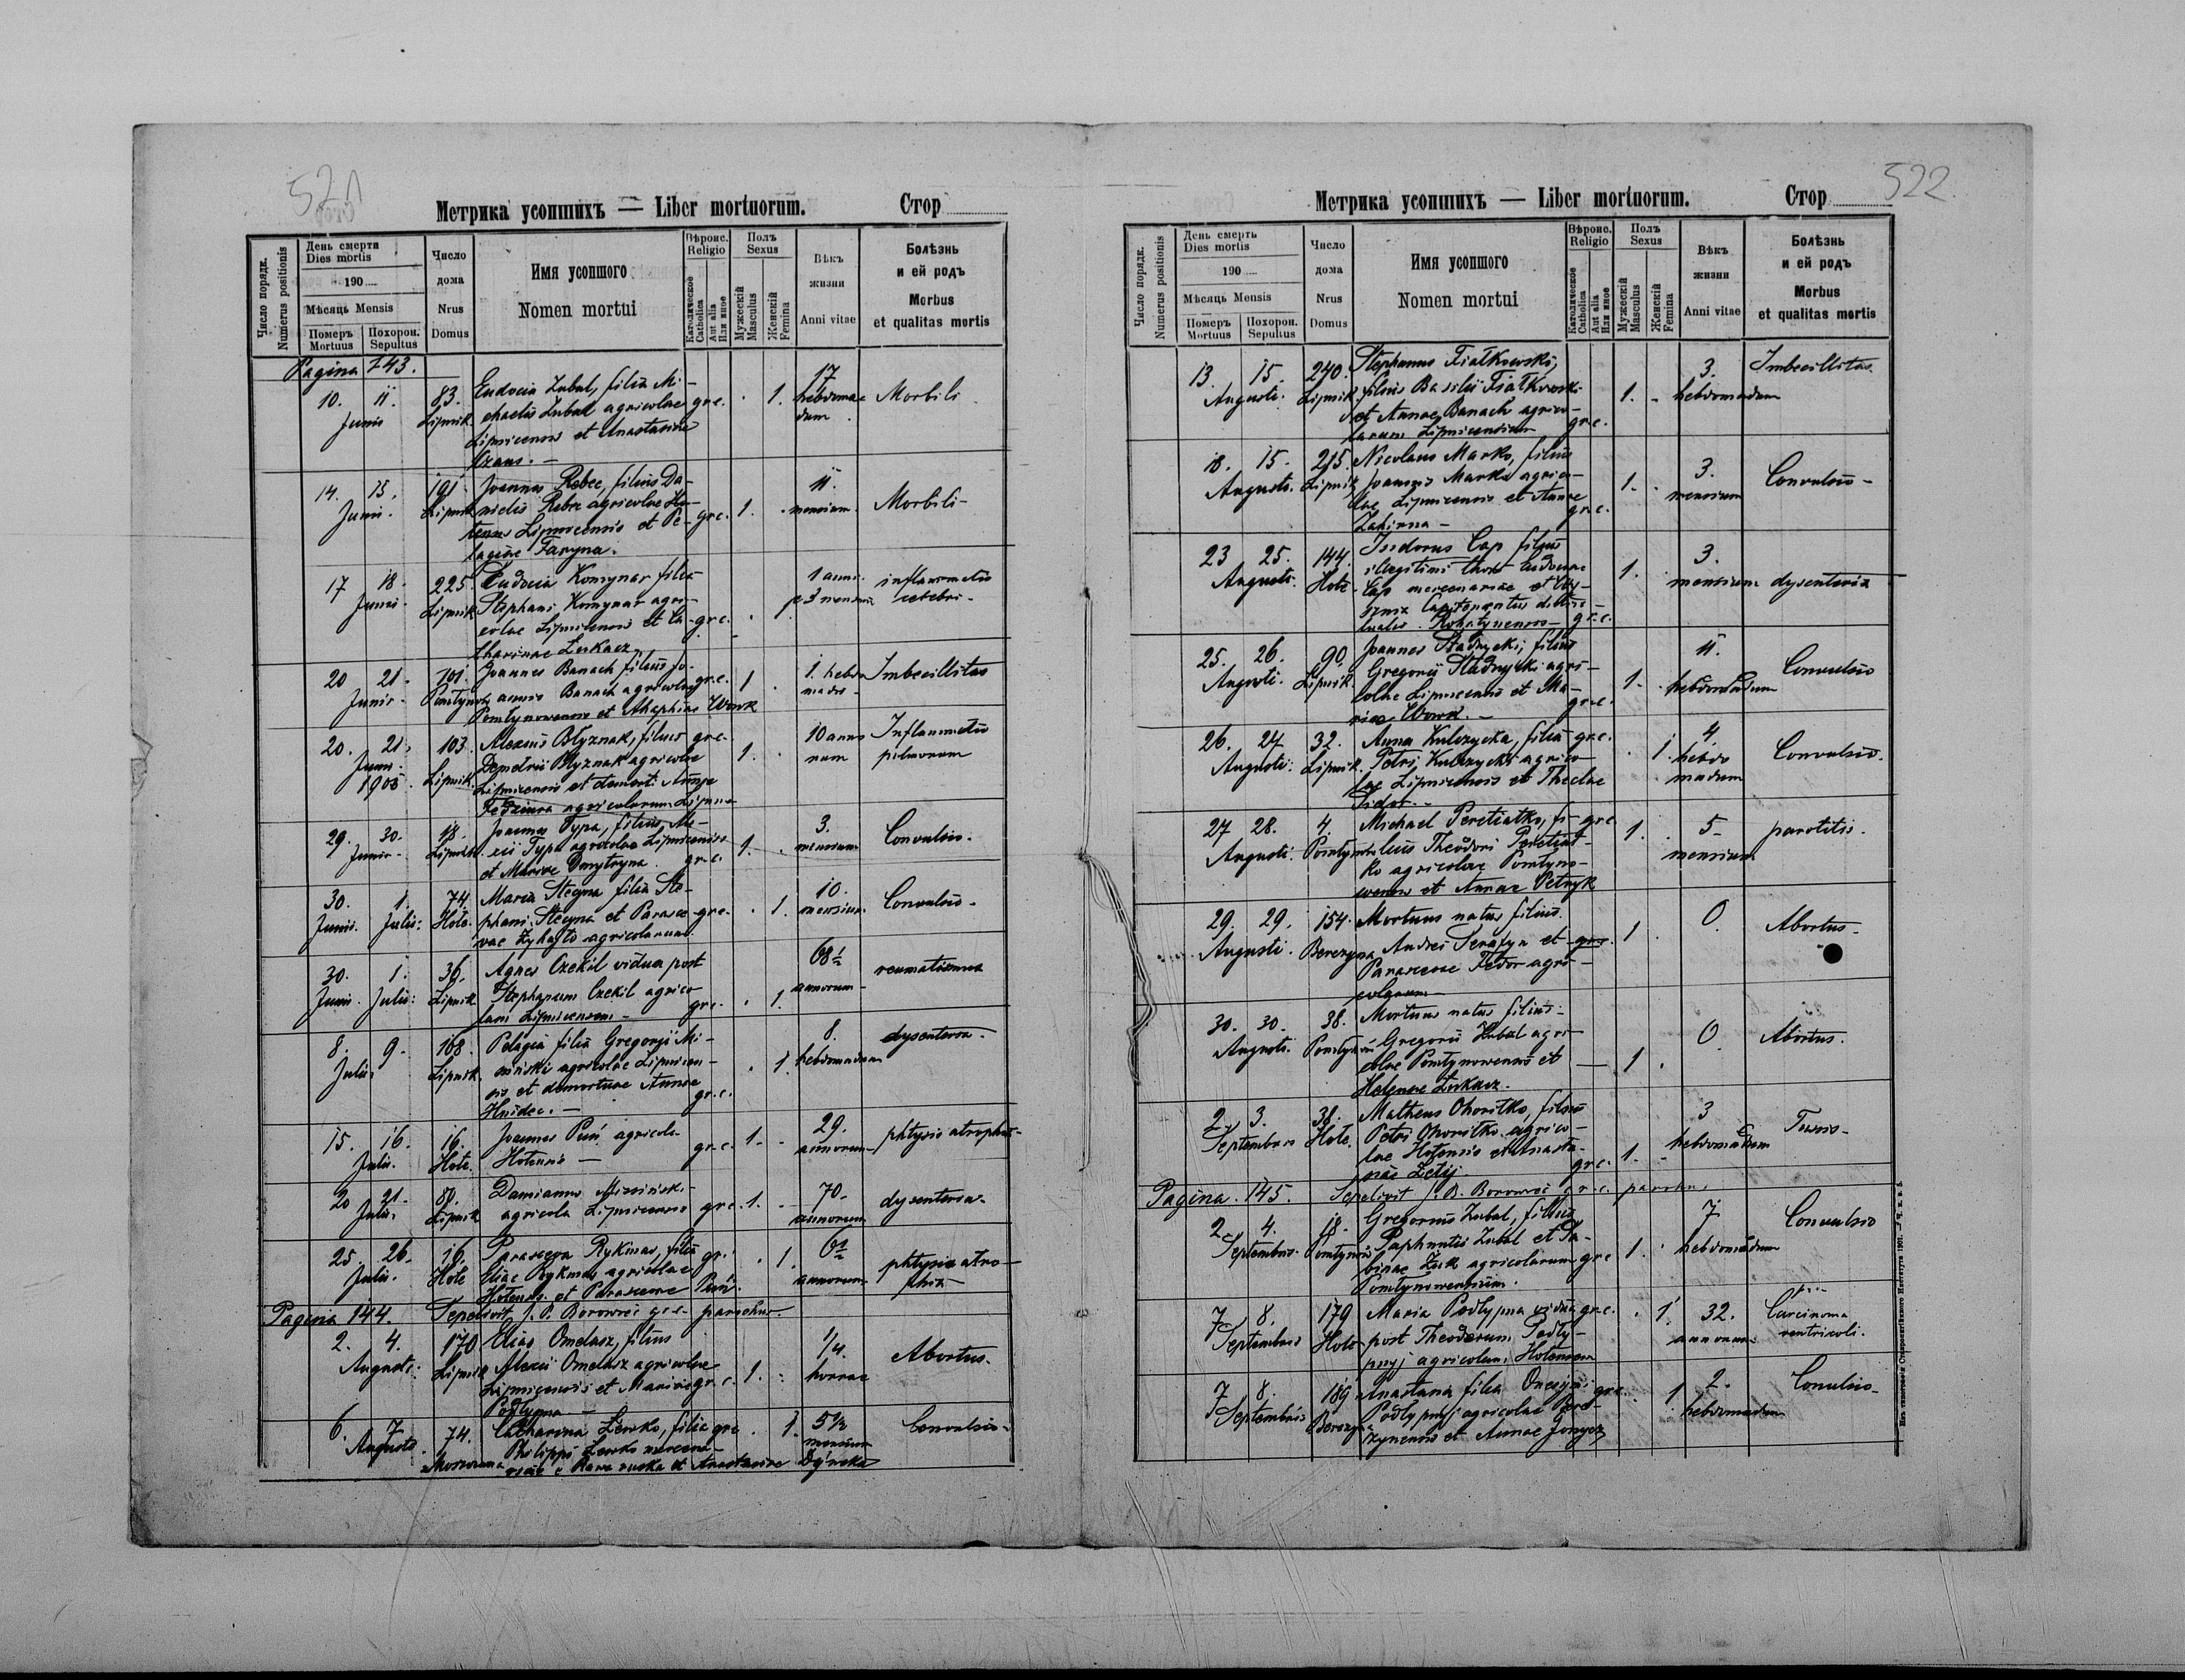 521
Метрика усопшихъ — Liber mortuorum.
Стор
Число порядк.
Numerus positionis
День смерти
Dies mortis
190
Мѣсяць Mensis
Померъ
Mortuus
Похорон.
Sepultus
Число
дома
Nrus
Domus
Имя усопшого
Nomen mortui
Вѣроис.
Religio
Католическое
Catholica
Aut alia
Или иное
Полъ
Sexus
Мужескій
Masculus
Женскій
Femina
Вѣкъ
жизни
Anni vitae
Болѣзнь
и ей родъ
Morbus
et qualitas mortis
Pagina 143.
10. 11. 83. Eudocia Zubal, filia Mi- 1. 17
Junii Lipnik. chaelis Zubal agricolae gr.c. hebdoma- Morbili
Lipnicensis et Anastasiae dum
14. 15. 191. Joannes Rebec, filius Da- 11.
Junii. Lipnik nielis Rebec agricolae gr.c. 1. mensium. Morbili-
Lipnicensis et Pe-
lagiae Faryna.
17 18. 225. Eudocia Komynar filia 1 anni
Junii. Lipnik Stephani Komynar agri- 3 mensium
colae Lipnicensis et Ca- gr.c.
tharinae Lukacz
20 21. 101. Joannes Banach filius Jo- gr.c. 1 1. hebdo Imbecillitas
Junii. annis Banach agricolae
et Agaphiae Wowk
20. 21. 103. Alexius Błyznak, filius gr.c. 1. 10 anno Inflammatio
Junii. Lipnik. Demetrii Błyznak agricolae rum pulmonum
1905. Lipnicensis et
29. 30. 18. Joannes Typa, filius Ale- 3.
Junii. Lipnik. xii Typa agricolae Lipnicensis 1. mensium Convulsio.
et Mariae Dmytryna. gr.c.
30. 1. 74. Maria Stecyna filia Ste- 10.
Junii. Julii. Hole. phani Stecyna et Parasce- gr.c. 1. mensium. Convulsio.
vae agricolarum
30. 1. 36. Agnes Czekil vidua post 68
Junii. Julii. Lipnik Stephanum Czekil agrico- gr.c. 1. annorum
lam Lipnicensem-
8. 9. 168. Pelagia filia Gregorii Mi- 8. dysenteria.
Julii. Lipnik. sinski agricolae Lipnicen- 1. hebdomadum
sis et demortuae Annae gr.c.
Hnidec.
15. 16. 16. Joannes Puń agricola gr.c. 1. 29. phtysis
Julii. Hole. Holensis annorum
20 21. 80. Damianus Misiński 70. dysenteria.
Julii. Lipnik agricola Lipnicensis gr.c. 1. annorum
25. 26. 16. Parasceva Rykmas, filia gr. 1. phtysis atro-
Julii. Hole Eliae Rykmas agricolae annorum phia
Holensis et Parascevae Puń.
Pagina 144. Sepelivit J. P. Borowiec gr.c. parochus.
2. 4. 170 Elias Omelasz, filius 1/4 Abortus.
Augusti. Lipnik Alexii Omelasz agricolae 1. horae
Lipnicensis et Mariae gr.c.
Podlypna
6. 7 74. Catharina Lewko, filia gr.c. 1. 5 1/2 Convulsio.
Augusti. Philippi Lewko mercena- mensium
rii e Rawa ruska et Anastasiae
522
Метрика усопшихъ — Liber mortuorum.
Стор
Число порядк.
Numerus positionis
День смерть
Dies mortis
190
Мѣсяць Mensis
Померъ
Mortuus
Похорон.
Sepultus
Число
дома
Nrus
Domus
Имя усопшого
Nomen mortui
Вѣроис.
Religio
Католическое
Catholica
Aut alia
Или иное
Полъ
Sexus
Мужескій
Masculus
Женскій
Femina
Вѣкъ
жизни
Anni vitae
Болѣзнь
и ей родъ
Morbus
et qualitas mortis
13. 15. 240. Stephanus Fiałkowski, 3. Imbecillitas
Augusti. Lipnik. filius Basilii Fiałkowski 1. hebdomadum
et Annae Banach agrico- gr.c.
larum Lipnicensium
18. 15. 215. Nicolaus Marko, filius 3. Convulsio-
Augusti. Lipnik Joannis Marko agrico- 1. mensium
lae Lipnicensis et Annae gr.c.
23 25. 144. Isidorus Cap filius 3.
Augusti. Hole illegitimi thori Eudociae 1. mensium dysenteria
Cap mercenariae
Rohatynensis gr.c.
25. 26. 90. Joannes Stadnycki, filius 11. Convulsio
Augusti. Lipnik. Gregorii Stadnycki agri- 1. hebdomadum
colae Lipnicensis et Ma- gr.c.
riae Wowk.
26. 27 32. Anna Kulczycka, filia gr.c. 4 Convulsio.
Augusti. Lipnik. Petri Kulczycki agrico- 1. hebdo
lae Lipnicensis et Theclae madum
Sidor.
27 28. 4. Michael Peretiatko, fi- gr.c. 1. 5- parotitis.
Augusti. lius Theodori Peretiat- mensium
ko agricolae
et Annae Petryk
29. 29. 154. Mortuus natus filius 1 0. Abortus-
Augusti. Berezyna Andrei Serafyn et gr.c.
Parascevae Fedor agri-
colarum
30. 30. 38. Mortuus natus filius 0 Abortus.
Augusti. Gregorii Zubal agri- 1.
colae et
Helenae Lukacz.
2. 3. 38. Matheus Ohorilko, filius 3 Tussis-
Septembris Hole. Petri Ohorilko agrico- 1. hebdomadum
lae Holensis et Anasta- gr.c.
siae
Pagina. 145. Sepelivit J. P. Borowiec gr.c. parochus
2 4. 18. Gregorius Zubal, filius 7 Convulsio
Septembris. Paphnutii Zubal et Sa- 1. hebdomadum
binae Żuk agricolarum gr.c
7 8. 179 Maria Podlypna vidua gr.c. 1. 32. Carcinoma
Septembris Hole post Theodorum Podly- annorum ventriculi.
pnyj agricolam Holensem
7 8. 189 Anastasia filia Onesym gr.c. 1 2. Convulsio-
Septembris Berezyna Podlypnyj agricolae Bere- hebdomadum
zynensis et Annae